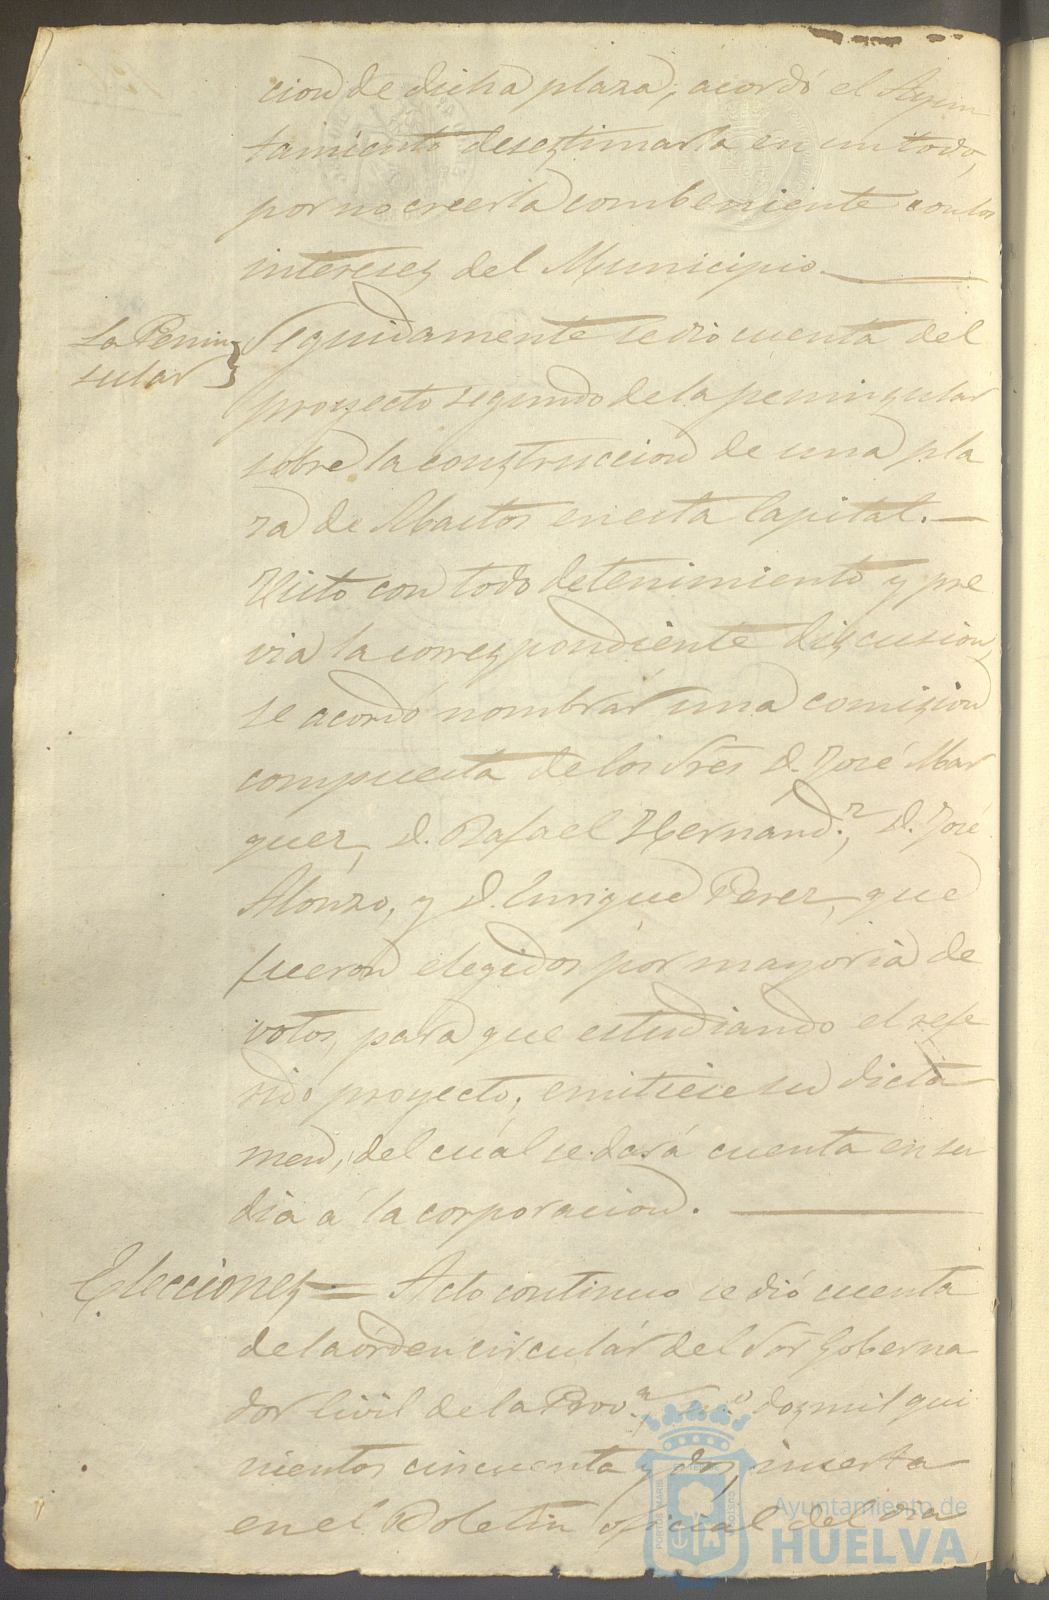 cion de dicha plaza, acordó el Ayun
tamiento desestimarla en un todo,
por no creerla combeniente con los
intereses del Municipio.
La Penin
sular
Seguidamente se dió cuenta del
proyecto segundo de la peninsular
sobre la construccion de una pla
za de Abastos en esta Capital.—
Visto con todo detenimiento y pre
via la correspondiente discusion,
se acordó nombrar una comision
compuesta de los Sres D. José Mar
quez, D. Rafael Hernand.z, D. José
Alonzo, y D. Enrique Perez, que
fueron elegidos por mayoria de
votos, para que estudiando el refe
rido proyecto, emitiese su dicta
men, del cuál se dará cuenta en su
dia á la corporacion.
Elecciones= Acto continuo se dió cuenta
de la órden circulár del Sor Goberna
dor Civil de la Prov.a n.o dos mil qui
nientos cincuenta y dos, inserta
en el Boletin oficial del dia
Ayuntamiento de
HUELVA